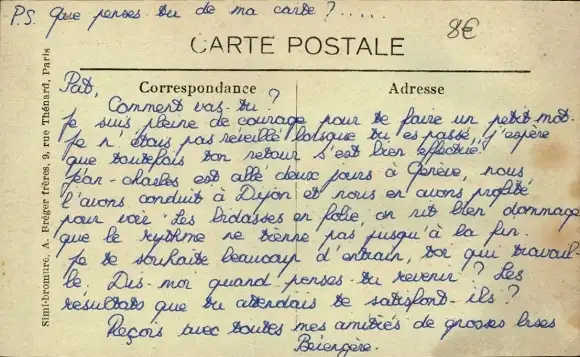 P.S. Que penses tu de ma carte ?.....
8€
CARTE POSTALE
Correspondance
Adresse
Simi-bromure, A. Bréger frères, 9, rue Thénard, Paris
Pat,
Comment vas-tu ?
Je suis pleine de courage pour te faire un petit mot.
Je n'étais pas réveillé lorsque tu es passé, j'espère
que toutefois ton retour s'est bien effectué.
Jean-Charles est allé deux jours à Genève, nous
l'avons conduit à Dijon et nous en avons profité
pour voir "Les bidasses en folie, on rit bien dommage
que le rythme ne tienne pas jusqu'à la fin.
Je te souhaite beaucoup d'entrain, toi qui travail-
le. Dis-moi quand penses-tu revenir ? Les
résultats que tu attendais te satisfont-ils ?
Reçois avec toutes mes amitiés de grosses bises
Bérengère.